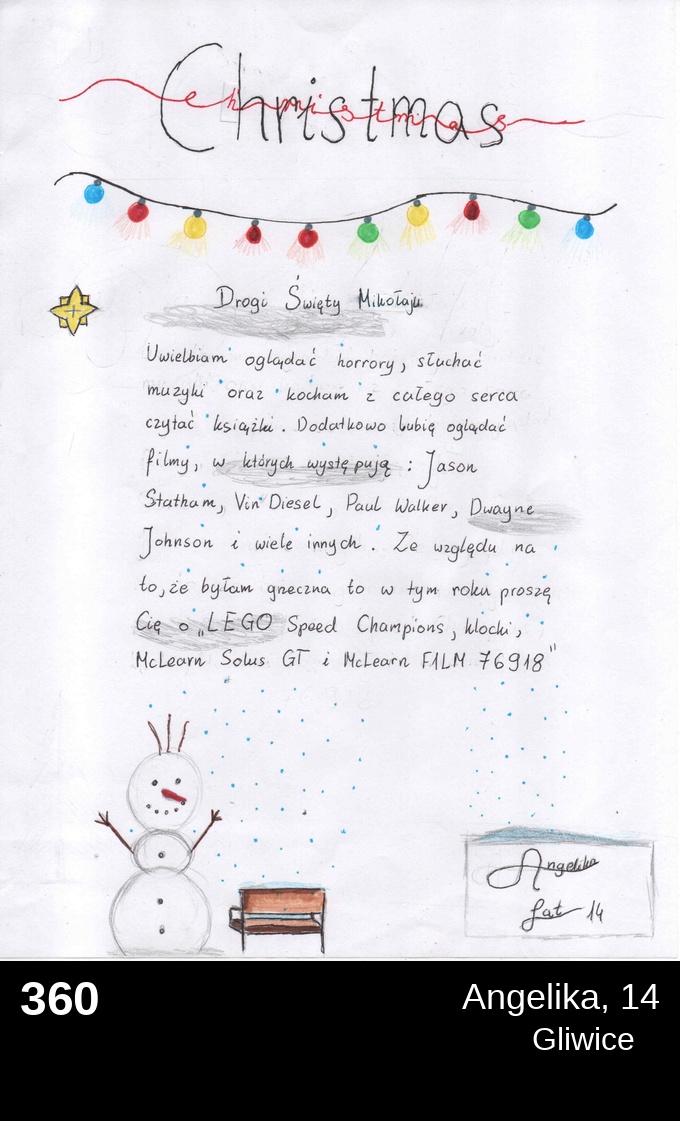 Christmas
christmas
Drogi Święty Mikołaju
Uwielbiam oglądać horrory, słuchać
muzyki oraz kocham z całego serca
czytać książki. Dodatkowo lubię oglądać
filmy, w których występują : Jason
Statham, Vin Diesel, Paul Walker, Dwayne
Johnson i wiele innych. Ze względu na
to, że byłam grzeczna to w tym roku proszę
Cię o „LEGO Speed Champions, klocki,
McLearn Solus GT i McLearn F1LM 76918"
Angelika
Lat 14
360
Angelika, 14
Gliwice